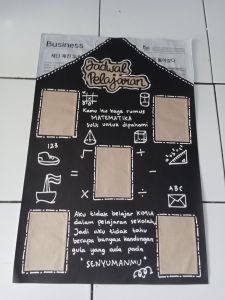 Business
Jadwal
Pelajaran
Kamu itu kaya rumus
MATEMATIKA
Sulit untuk dipahami
123
ABC
Aku tidak belajar KIMIA
dalam pelajaran sekolah,
Jadi aku tidak tahu
berapa banyak kandungan
gula yang ada pada
SENYUMANMU